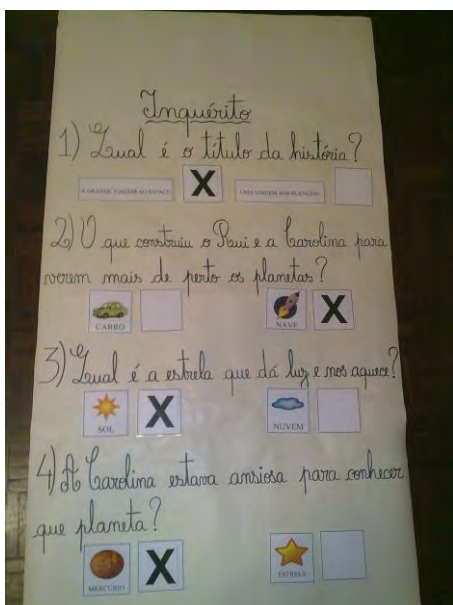 Inquérito
1) Qual é o título da história?
A GRANDE VIAGEM AO ESPAÇO X UMA VIAGEM AOS PLANETAS
2) O que construiu o Rui e a Carolina para
verem mais de perto os planetas?
CARRO NAVE X
3) Qual é a estrela que dá luz e nos aquece?
SOL X NUVEM
4) A Carolina estava ansiosa para conhecer
que planeta?
MERCÚRIO X ESTRELA